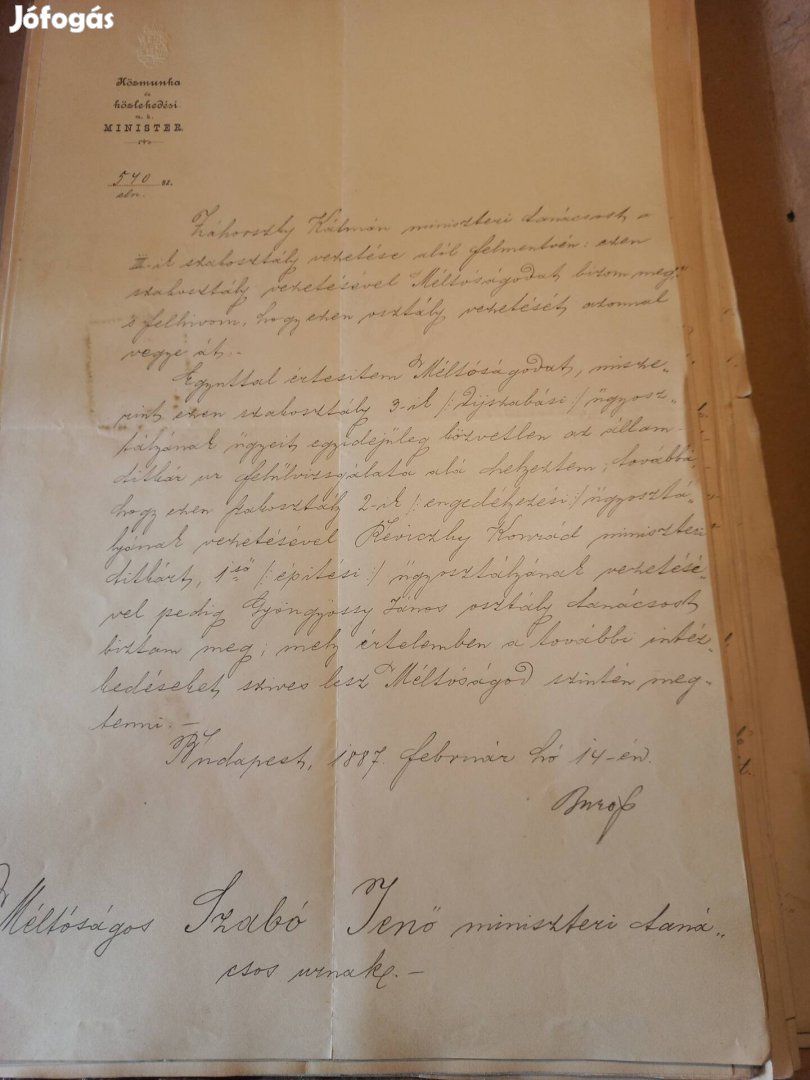 Jófogás
Közmunka
és
közlekedési
m. k.
MINISTER.
540 sz.
eln.
Záhorszky Kálmán miniszteri tanácsost a
III-ik szakosztály vezetése alól felmentvén: ezen
szakosztály vezetésével Méltóságodat bizom meg
s felhivom, hogy ezen osztály vezetését azonnal
vegye át.-
Egyuttal értesitem Méltóságodat, misze-
rint ezen szakosztály 3-ik /:dijszabási:/ ügyosz-
tályának ügyeit egyidejüleg közvetlen az állam-
titkár ur felülvizsgálata alá helyeztem; továbbá,
hogy ezen szakosztály 2-ik /:engedélyezési:/ ügyosztá-
lyának vezetésével Réviczky Konrád miniszteri
titkárt, 1ső /:épitési:/ ügyosztályának vezetésé-
vel pedig Gyöngyössy János osztály tanácsost
biztam meg; mely értelemben a további intéz-
kedéseket szives lesz Méltóságod szintén meg-
tenni.-
Budapest, 1887. február hó 14-én.
Méltóságos Szabó Jenő miniszteri taná-
csos urnak.-